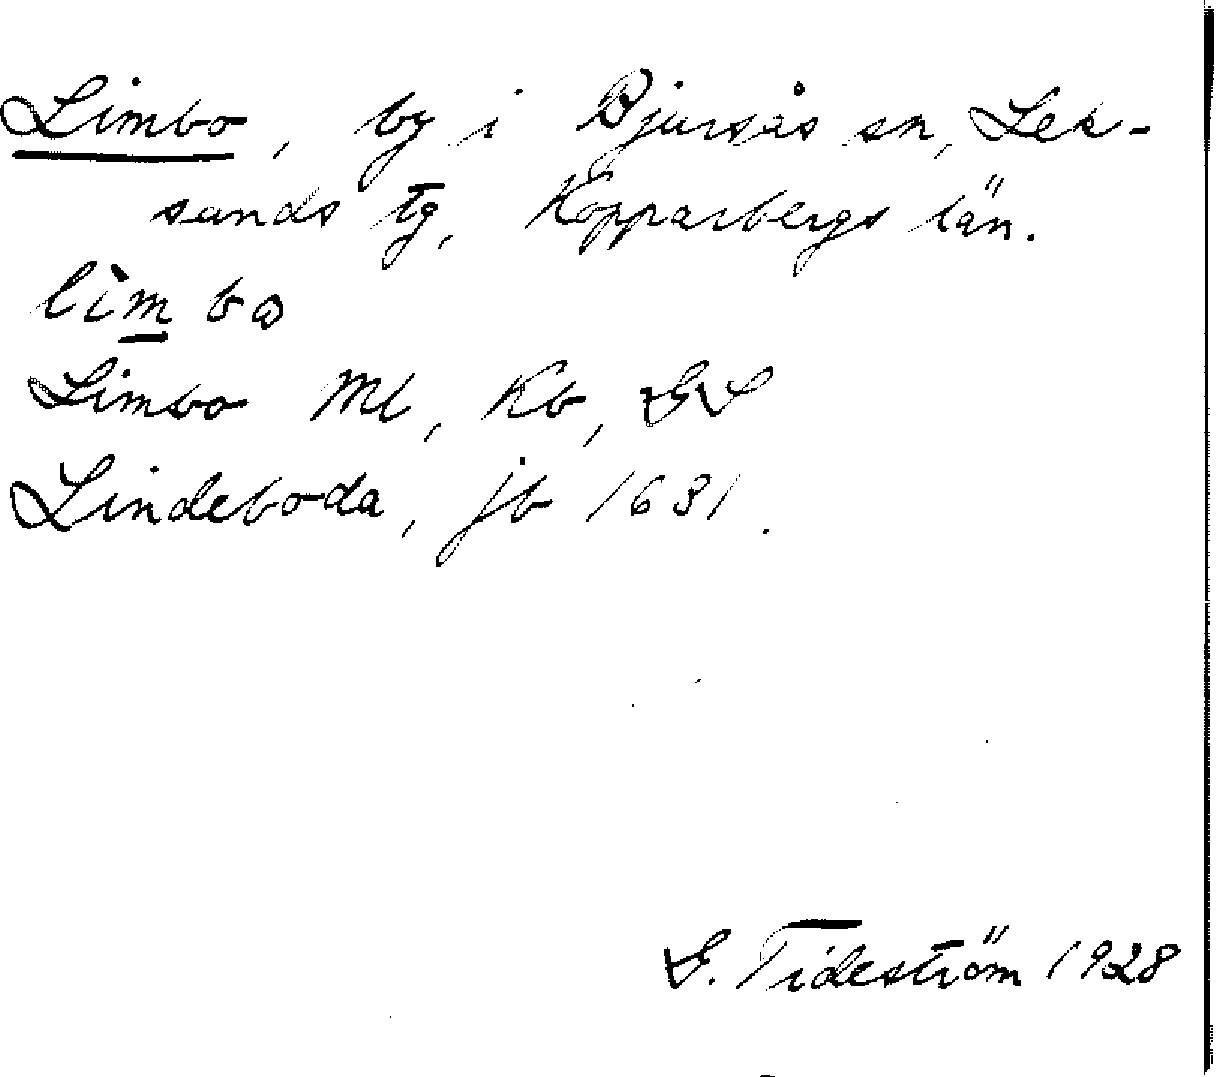 Limbo, by i Bjursås sn, Lek-
sands tg, Kopparbergs län.
lìm bo
Limbo Ml, Kb, GS
Lindeboda, jb 1631.
G. Tideström 1928